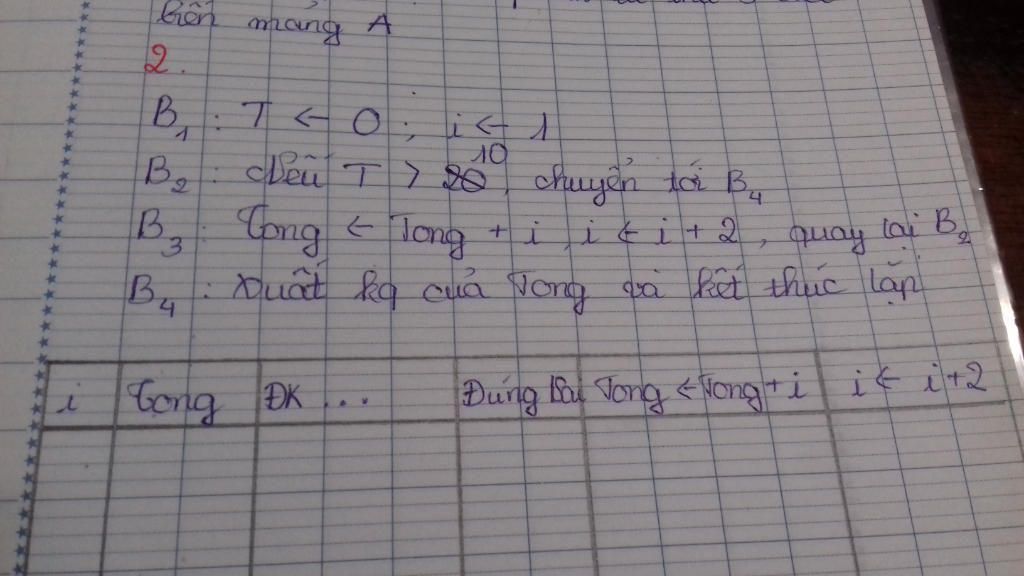 biến mảng A
2.
B1 : T ← 0 ; i ← 1
B2 : Nếu T > 10, chuyển tới B4
B3 : Tong ← Tong + i, i ← i + 2, quay lại B2
B4 : Xuất kq của Tong và kết thúc lặp
i Tong ĐK ... Đúng/sai Tong ← Tong + i i ← i + 2